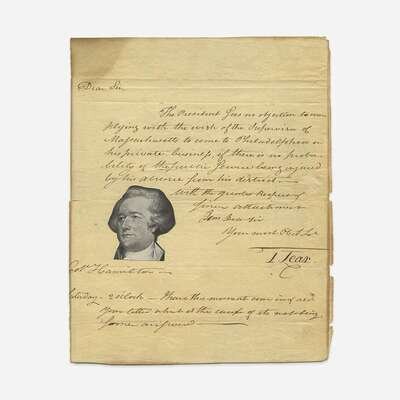 Dear Sir
The President sees no objection to com
plying with the wish of the Supervisor of
Massachusetts to come to Philadelphia on
his private business, if there is no proba-
bility of the public Service being injured
by his absence from his district—
With the greatest respect &
sincere attachment
I am Dear Sir
Your most Obt Sr
T. Lear.
Hamilton—
Saturday— 2 o'Clock— I have this moment come in, and
your letter is the cause of its not being
sooner answered—